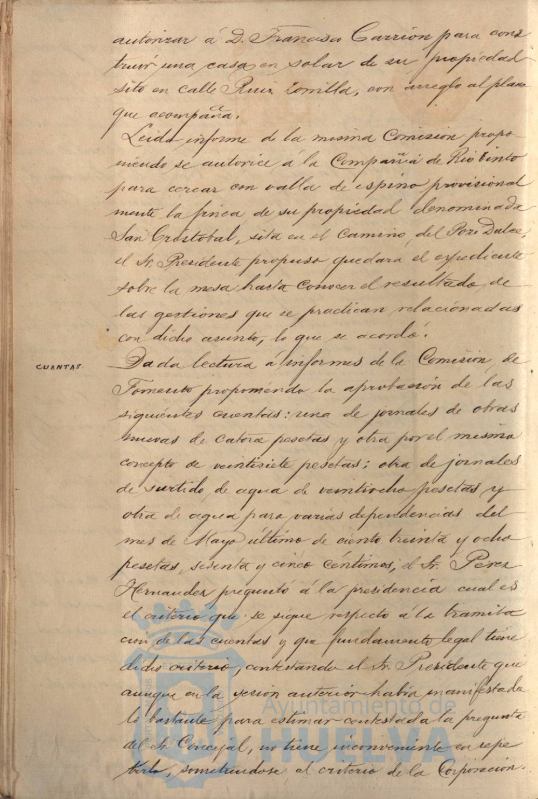 autorizar á D. Francisco Carrión para cons
truir una casa en solar de su propiedad
sito en calle Ruiz Zorrilla, con arreglo al plano
que acompaña.
Leido informe de la misma Comision propo
niendo se autorice á la Compañia de Rio Tinto
para cercar con valla de espino provisional
mente la finca de su propiedad denominada
San Cristobal, sita en el Camino del Pozo Dulce,
el Sr. Presidente propuso quedara el expediente
sobre la mesa hasta conocer el resultado de
las gestiones que se practican relacionadas
con dicho asunto, lo que se acordó.
CUENTAS
Dada lectura á informes de la Comisión de
Fomento proponiendo la aprobación de las
siguientes cuentas: una de jornales de obras
nuevas de catorce pesetas y otra por el mismo
concepto de veintisiete pesetas; otra de jornales
de surtido de agua de veintiocho pesetas y
otra de agua para varias dependencias del
mes de Mayo último de ciento treinta y ocho
pesetas, sesenta y cinco céntimos, el Sr. Perez
Hernandez preguntó á la presidencia cual es
el criterio que se sigue respecto á la tramita
cion de las cuentas y que fundamento legal tiene
dicho criterio, contestando el Sr. Presidente que
aunque en la sesion anterior habia manifestado
lo bastante para estimar contestada la pregunta
del Sr. Concejal, no tiene inconveniente en repe
tirla, sometiendose al criterio de la Corporacion.
Ayuntamiento de
HUELVA